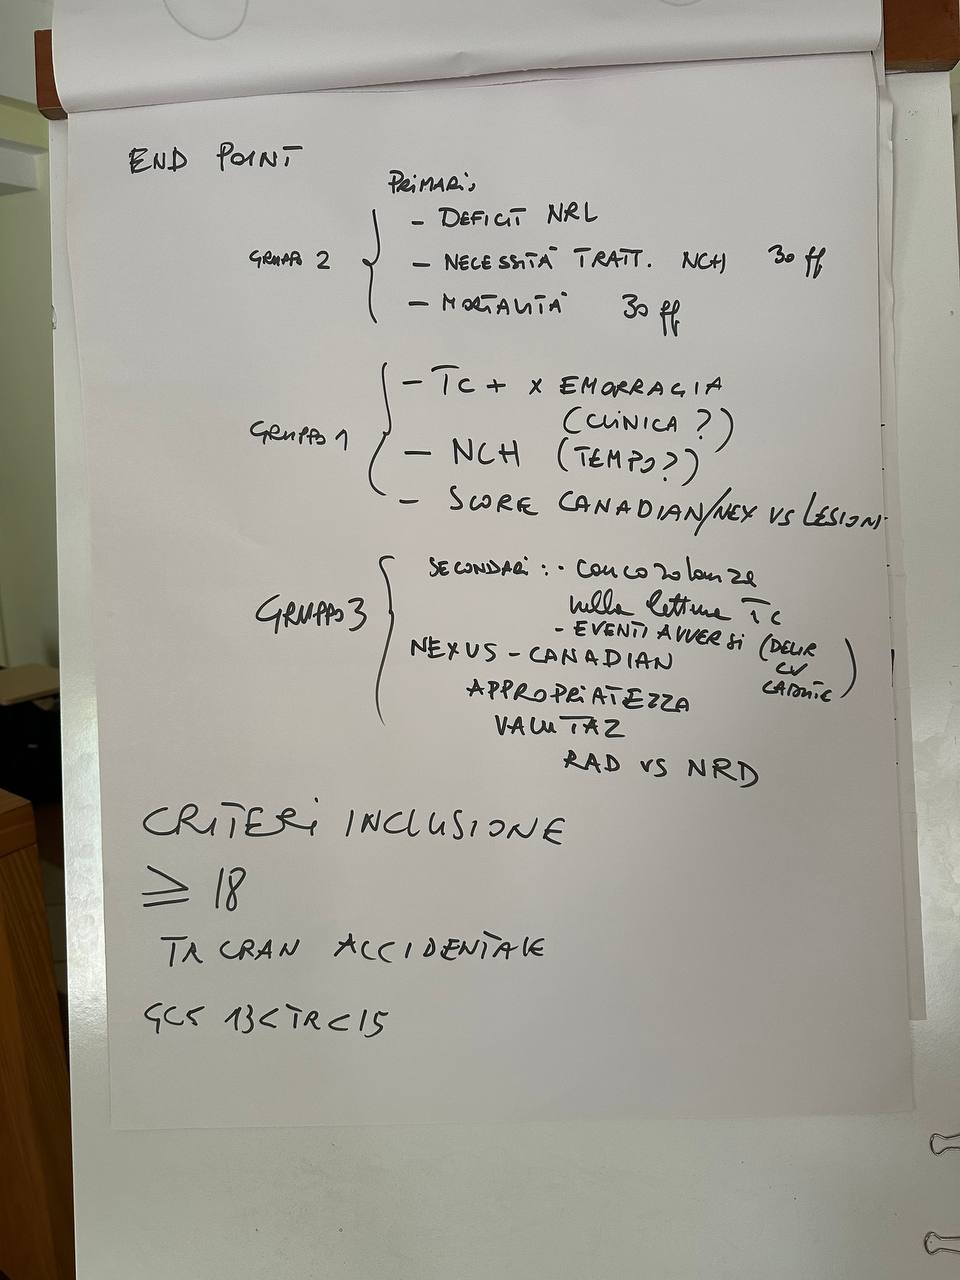 END POINT
PRIMARI:
GRUPPO 2
- DEFICIT NRL
- NECESSITÀ TRATT. NCH 30 gg
- MORTALITÀ 30 gg
GRUPPO 1
- TC + X EMORRAGIA
(CLINICA ?)
- NCH (TEMPO?)
- SCORE CANADIAN/NEX VS LESIONI
GRUPPO 3
SECONDARI : - concordanze
nella lettura TC
- EVENTI AVVERSI (DELIR
CV
CADUTE)
NEXUS - CANADIAN
APPROPRIATEZZA
VALUTAZ
RAD VS NRD
CRITERI INCLUSIONE
≥ 18
TR CRAN ACCIDENTALE
GCS 13<TR<15